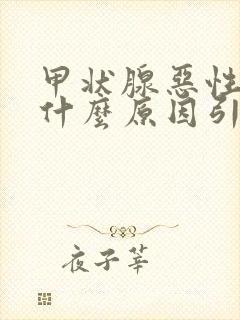 甲状腺惡性
什麼原因引
夜子莘